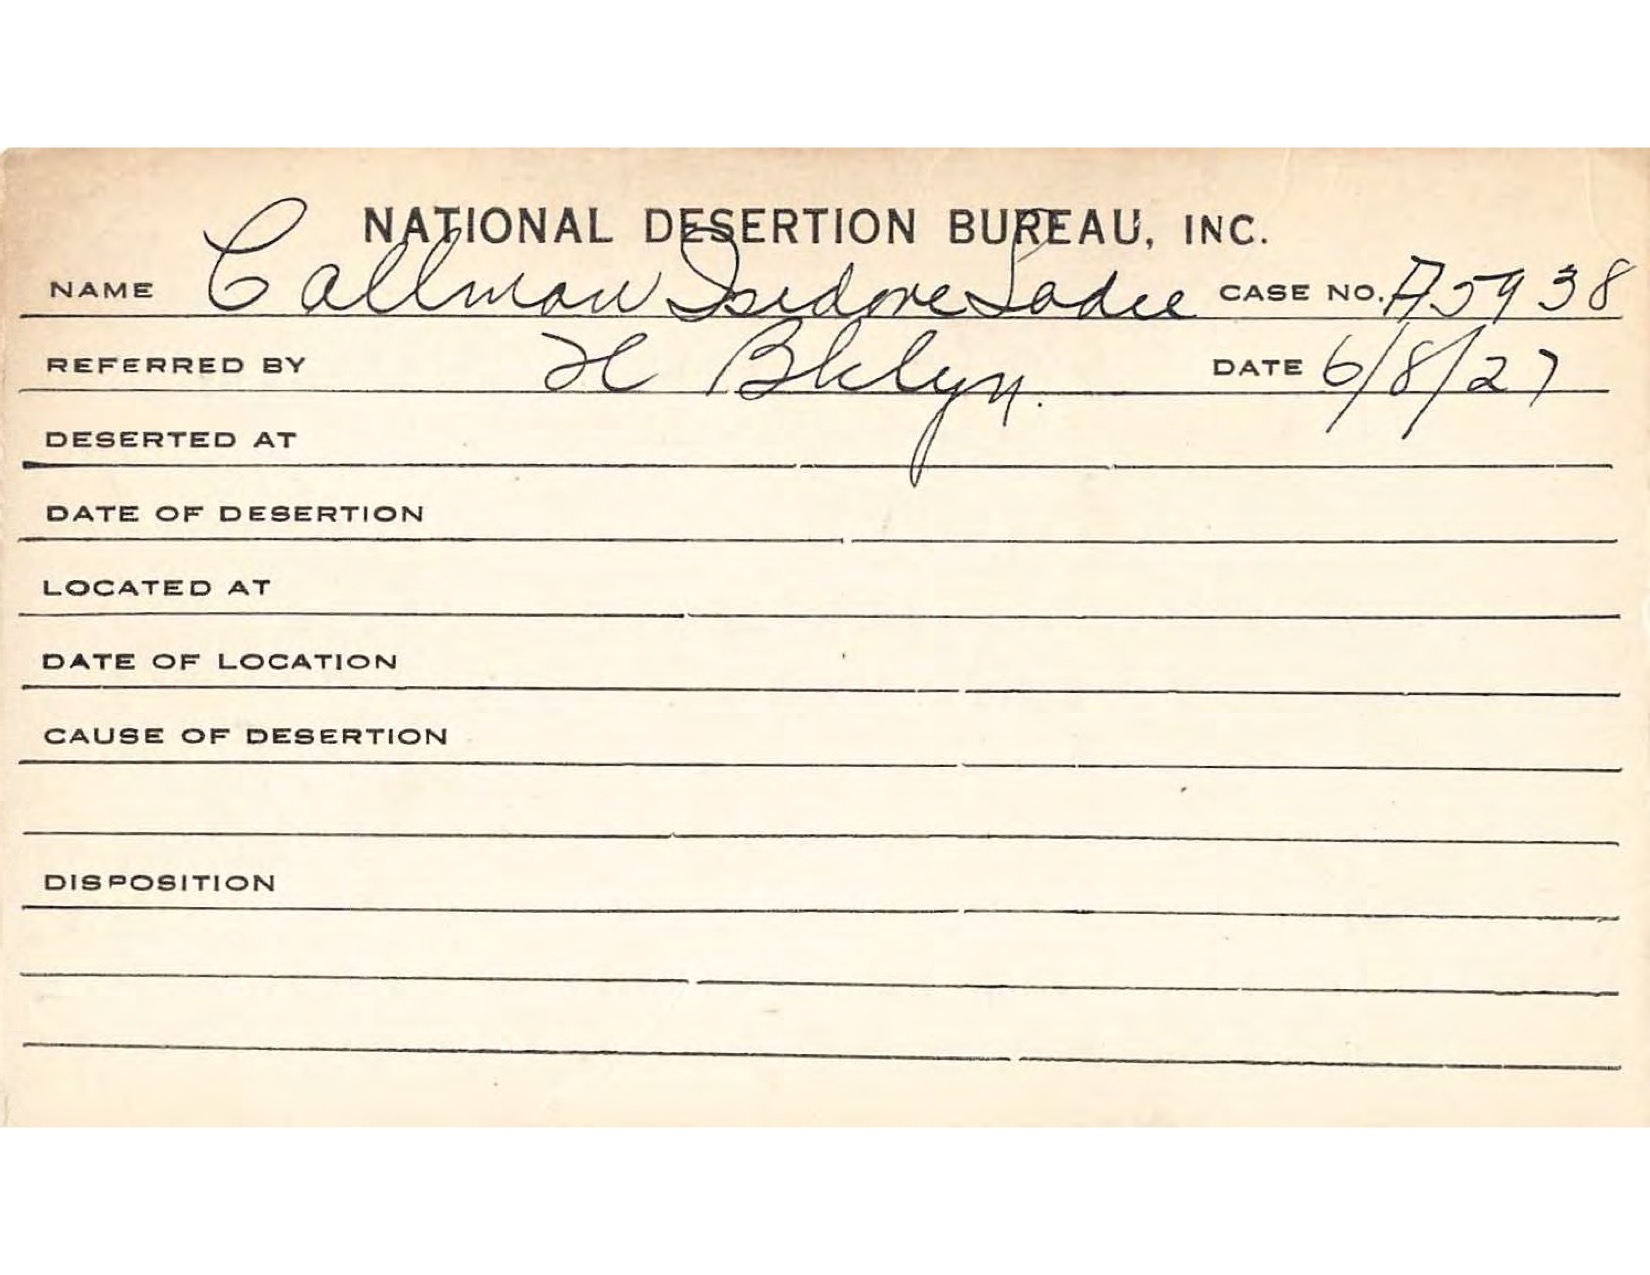 NATIONAL DESERTION BUREAU, INC.
NAME Callman Isidore Sadie CASE NO. A5938
REFERRED BY H Bklyn. DATE 6/8/27
DESERTED AT
DATE OF DESERTION
LOCATED AT
DATE OF LOCATION
CAUSE OF DESERTION
DISPOSITION